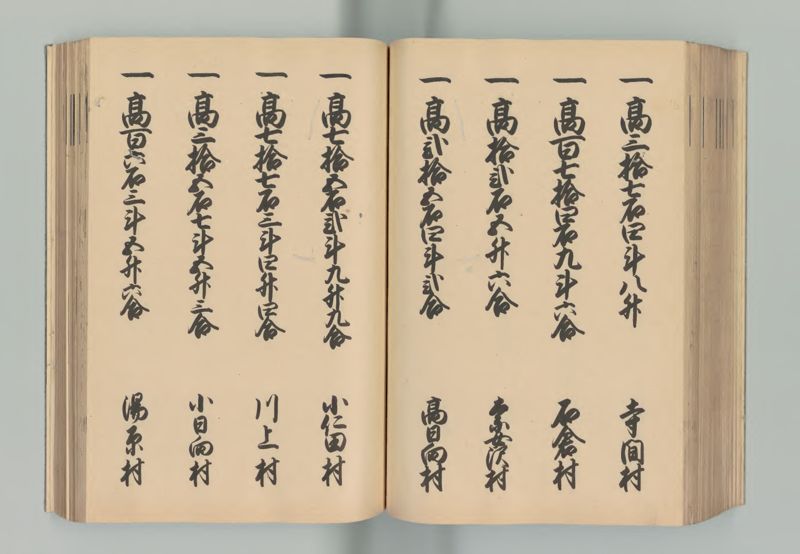 一 高三拾七石四斗八升 寺間村
一 高百七拾四石九斗六合 石倉村
一 高拾弐石五升六合 奈女沢村
一 高弐拾五石四斗弐合 高日向村
一 高七拾五石弐斗九升九合 小仁田村
一 高七拾七石三斗四升四合 川上村
一 高三拾五石七斗五升三合 小日向村
一 高百六石三斗五升六合 湯原村